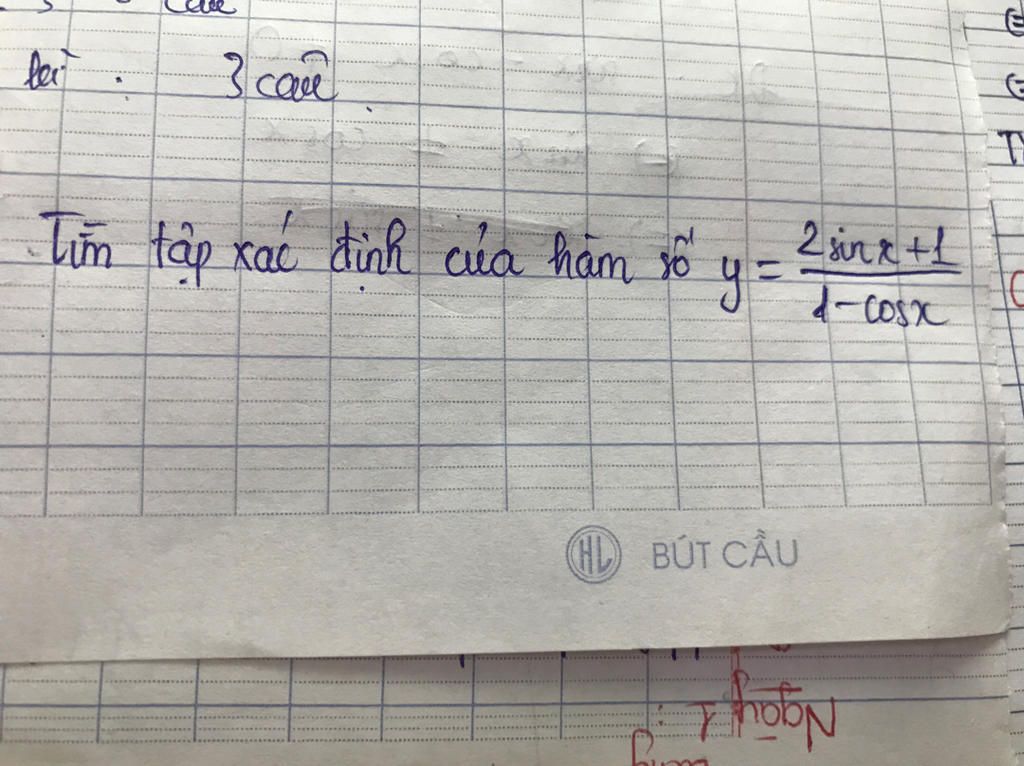 câu
: 3 câu
Tìm tập xác định của hàm số y = \frac{2 sin x + 1}{1 - cos x}
HL BÚT CẦU
Ngày 1 :